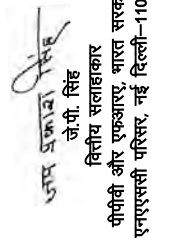 जय प्रकाश सिंह
जे.पी. सिंह
वित्तीय सलाहाकार
पीपीवी और एफआरए, भारत सरक
एनएएससी परिसर, नई दिल्ली–110